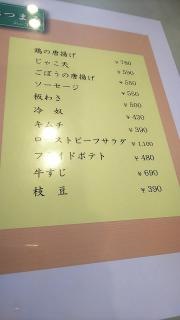 つま
鶏の唐揚げ ¥780
じゃこ天 ¥590
ごぼうの唐揚げ ¥580
ソーセージ ¥550
板わさ ¥500
冷奴 ¥430
キムチ ¥390
ローストビーフサラダ ¥1,100
フライドポテト ¥480
牛すじ ¥690
枝豆 ¥390